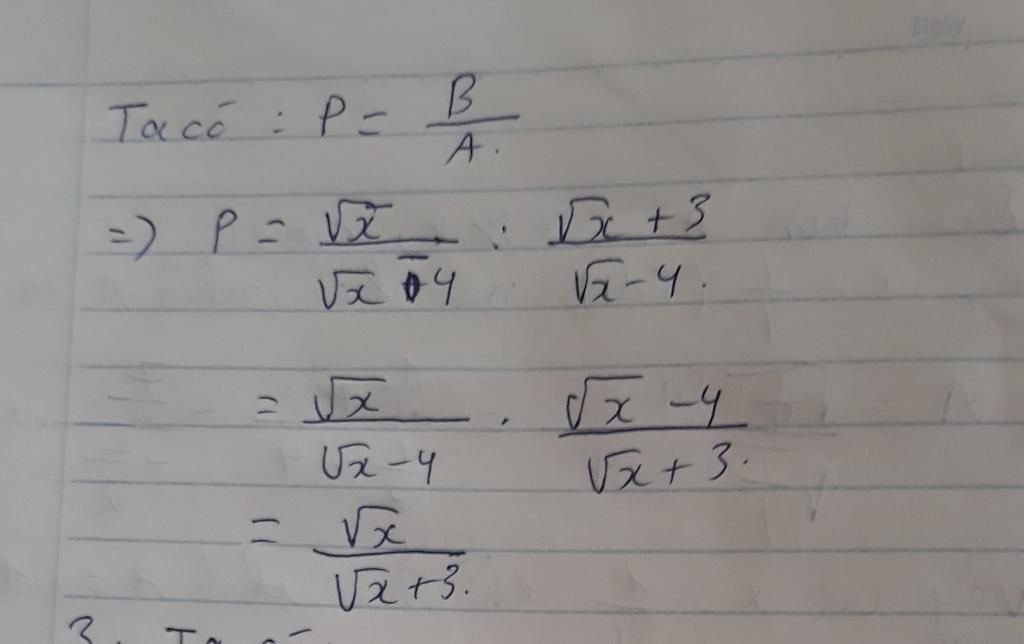 Ta có : P = B/A.
=> P = √x/(√x - 4) : (√x + 3)/(√x - 4).
= √x/(√x - 4) . (√x - 4)/(√x + 3).
= √x/(√x + 3).
3. Ta có